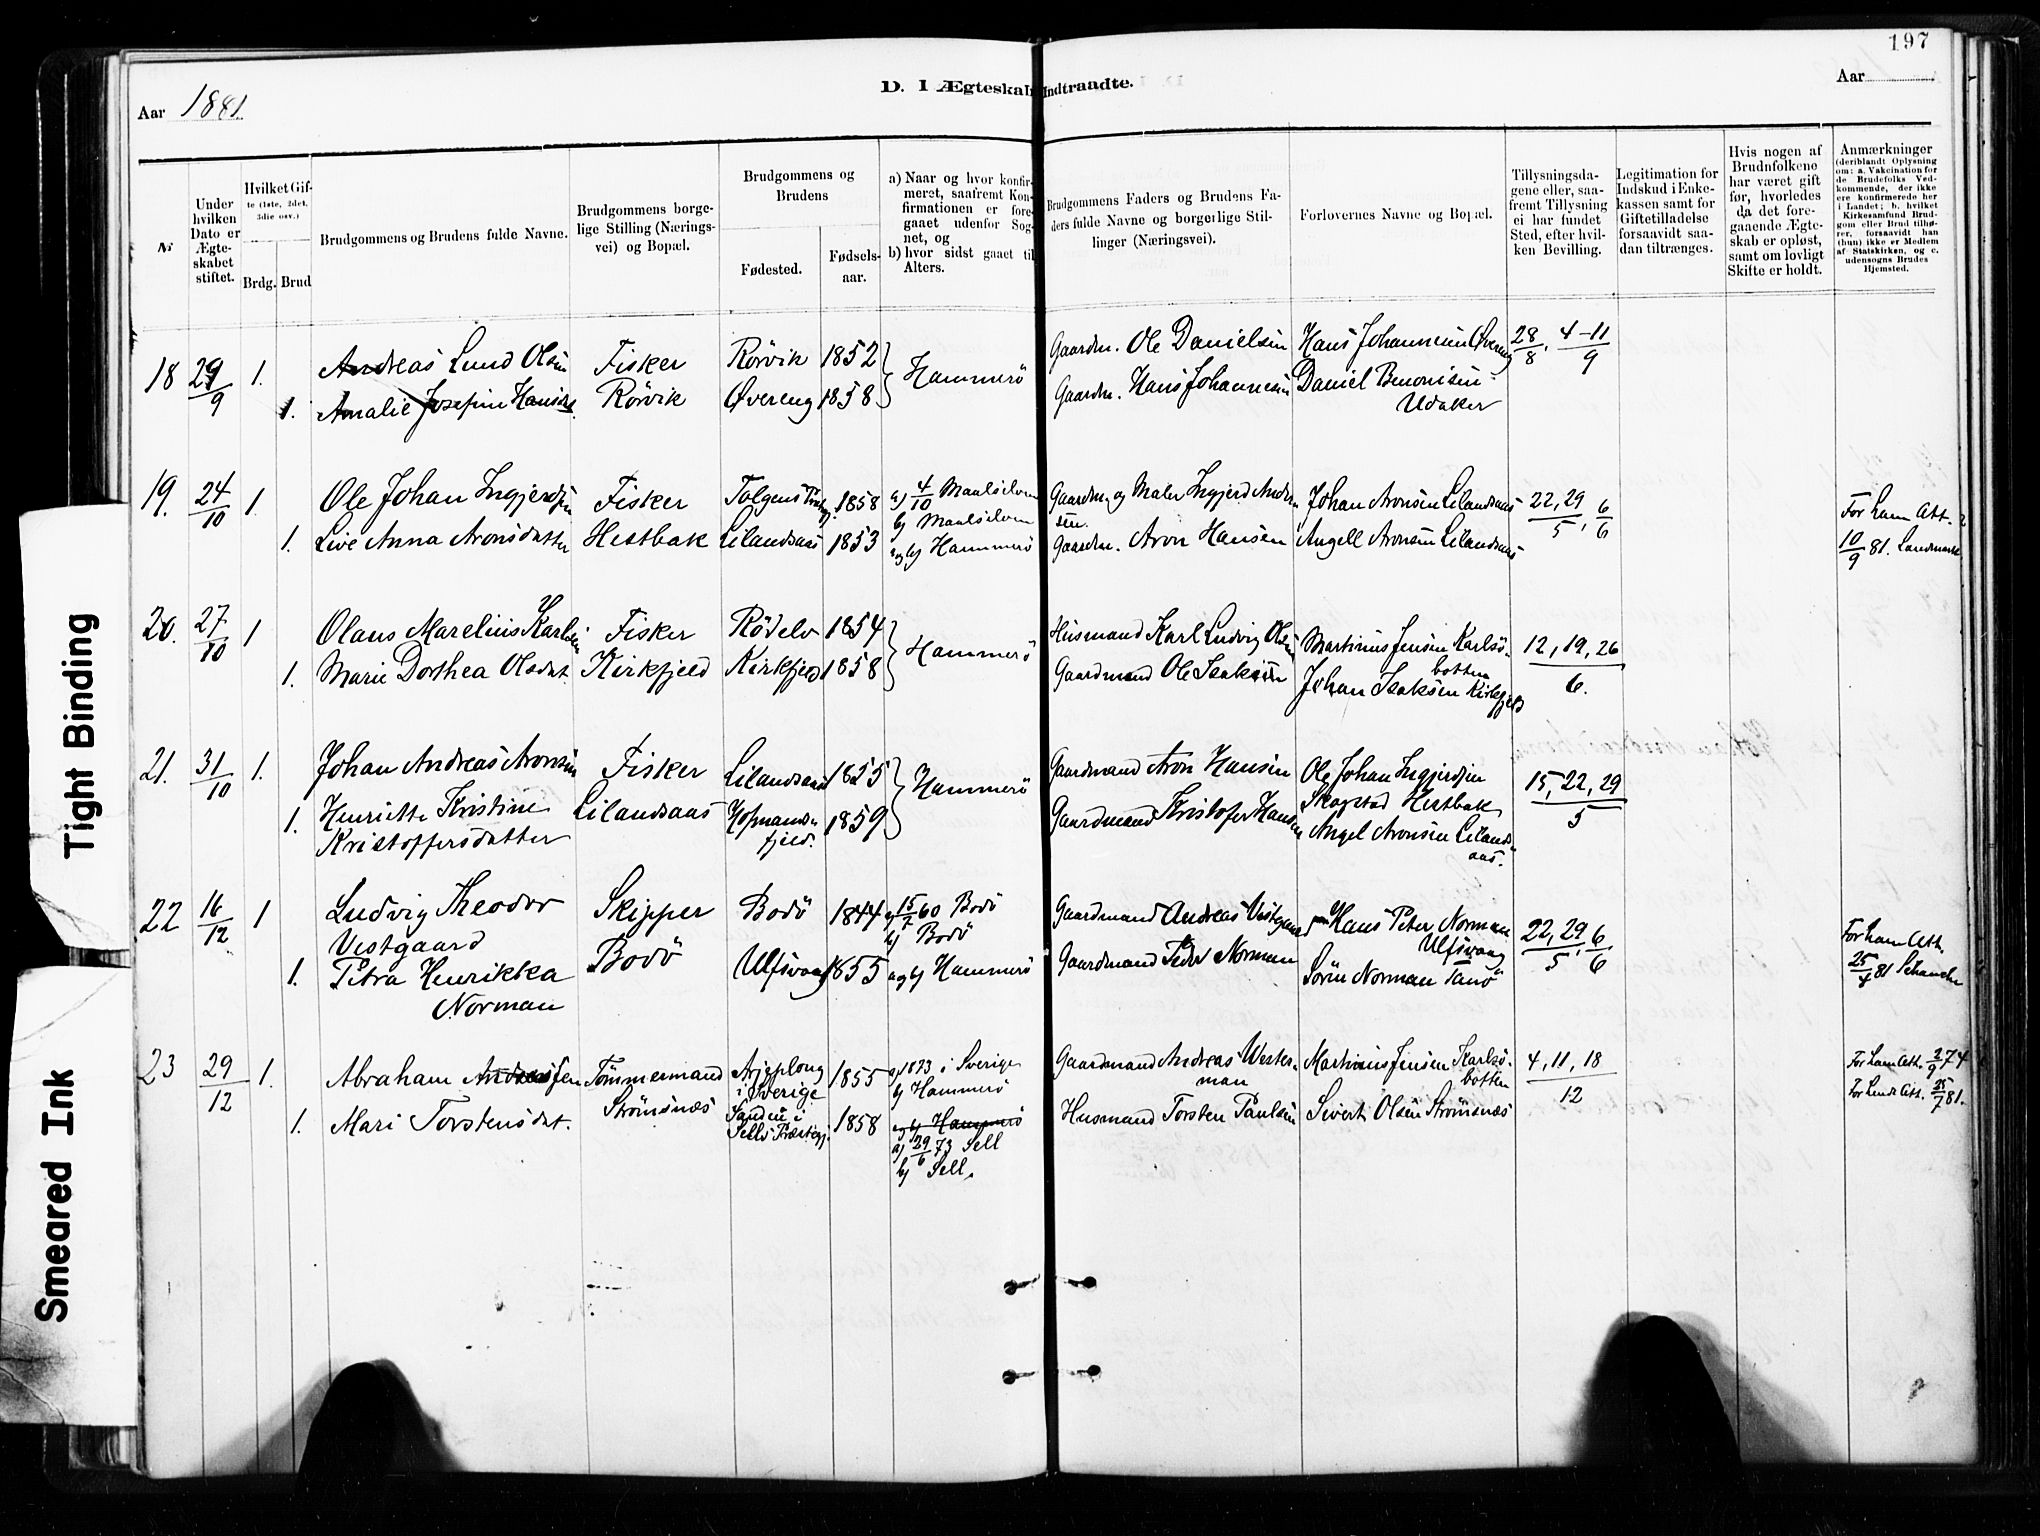 197
D. I Ægteskab Indtraadte.
Aar 1881.
Aar
Nr
Under hvilken Dato er Ægteskabet stiftet.
Hvilket Gifte (1ste, 2det, 3die osv.)
Brdg. Brud
Brudgommens og Brudens fulde Navne.
Brudgommens borgelige Stilling (Næringsvei) og Bopæl.
Brudgommens og Brudens
Fødested.
Fødselsaar.
a) Naar og hvor konfirmeret, saafremt Konfirmationen er foregaaet udenfor Sognet, og
b) hvor sidst gaaet til Alters.
Brudgommens Faders og Brudens Faders fulde Navne og borgerlige Stillinger (Næringsvei).
Forlovernes Navne og Bopæl.
Tillysningsdagene eller, saafremt Tillysning ei har fundet Sted, efter hvilken Bevilling.
Legitimation for Indskud i Enkekassen samt for Giftetilladelse forsaavidt saadan tiltrænges.
Hvis nogen af Brudnfolkene har været gift før, hvorledes da det foregaaende Ægteskab er opløst, samt om lovligt Skifte er holdt.
Anmærkninger (deriblandt Oplysning om: a. Vakcination for de Brudefolks Vedkommende, der ikke ere konfirmerede her i Landet; b. hvilket Kirkesamfund Brudgom eller Brud tilhører, forsaavidt han (hun) ikke er Medlem af Statskirken, og c. udensogns Brudes Hjemsted.
18 29/9 1. Andreas Lund Olsen Fisker Rörvik 1852 Hammerö Gaardm. Ole Danielsen Hans Johannesen Øvereng 28/8, 4-11/9
1. Amalie Josefine Hansdt. Rörvik Øvereng 1858 Gaardm. Hans Johannesen Daniel Benonisen
Udaker
19. 24/10 1. Ole Johan Ingjerdsen Fisker Tolgens 1858 a) 4/10 Maalselven Gaardm. og Maler Ingjerd Andersen Johan Aronsen Lilandsaas 22, 29/5, 6/6 For ham Att.
b) Maalselven
1. Live Anna Aronsdatter Hestbak Lilandsaas 1853 a og b) Hammerö Gaardm. Aron Hansen Angell Aronsen Lilandsaas 10/9 81. Landmark
20. 27/10 1 Olaus Marelius Karlsen Fisker Rödelv 1854 Hammerö Husmand Karl Ludvig Olsen Martinus Jensen Karlsöbotten 12, 19, 26/6.
1. Marie Dorthea Olsdat. Kirkfjeld Kirkfjeld 1858 Gaardmand Ole Isaksen Johan Isaksen Kirkfjeld
21. 31/10 1. Johan Andreas Aronsen Fisker Lilandsaas 1855 Hammerö Gaardmand Aron Hansen Ole Johan Ingjerdsen 15, 22, 29/5
Skogstad Hestbak
1. Henriette Kristine Lilandsaas Hofmandsfjeld. 1859 Gaardmand Kristofer Hansen Angel Aronsen Lilandsaas.
Kristoffersdatter
22 16/12 1 Ludvig Theodor Skipper Bodö 1844 a) 15/7 60 Bodö Gaardmand Andreas Vestgaard Hans Peter Norman 22, 29/5, 6/6 For ham Att.
Vestgaard Bodö b) Bodö Ulfsvaag 25/4 81 Schanche
1. Petra Henrikka Ulfsvaag 1855 a og b) Hammerö Gaardmand Peder Norman Sören Norman Tanö
Norman
23 29/12 1. Abraham Andreassen Tömmermand Arjeploug i Sverige 1855 a) 1873 i Sverige Gaardmand Andreas Westerman Martinus Jensen Karlsöbotten 4, 11, 18/12 For ham Att. 2/9 74
Strömsnæs b) Hammerö For hende Att. 25/7 81.
1. Mari Torstensdat. Sandnes i Sells Præstegj. 1858 a og b) Hammerö Husmand Torsten Paulsen Sivert Olsen Strömsnæs
a) 29/6 73 Sell
b) Sell.
Tight Binding
Smeared Ink